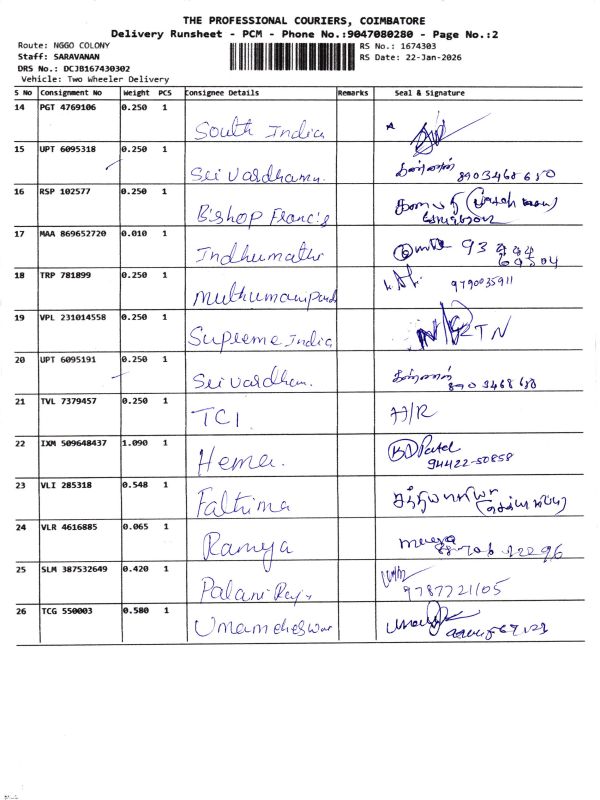 THE PROFESSIONAL COURIERS, COIMBATORE
Delivery Runsheet - PCM - Phone No.:9047080280 - Page No.:2
Route: NGGO COLONY
RS No.: 1674303
Staff: SARAVANAN
RS Date: 22-Jan-2026
DRS No.: DCJB167430302
Vehicle: Two Wheeler Delivery
S No Consignment No Weight PCS Consignee Details Remarks Seal & Signature
14 PGT 4769106 0.250 1
South India
15 UPT 6095318 0.250 1
Sri Vardhamn. 8903468680
16 RSP 102577 0.250 1
Bishop Francis
17 MAA 869652720 0.010 1
Indhumathi
18 TRP 781899 0.250 1
Muthumanipandi 9790035911
19 VPL 231014558 0.250 1
Supreme India
20 UPT 6095191 0.250 1
Sri Vardhan. 8903468680
21 TVL 7379457 0.250 1
TCI. A/R
22 IXM 509648437 1.090 1
Hema. BD Patel
94422-50858
23 VLI 285318 0.548 1
Fathima
24 VLR 4616885 0.065 1
Ramya
25 SLM 387532649 0.420 1
Palani Raj 9787721105
26 TCG 550003 0.580 1
Umamaheswar